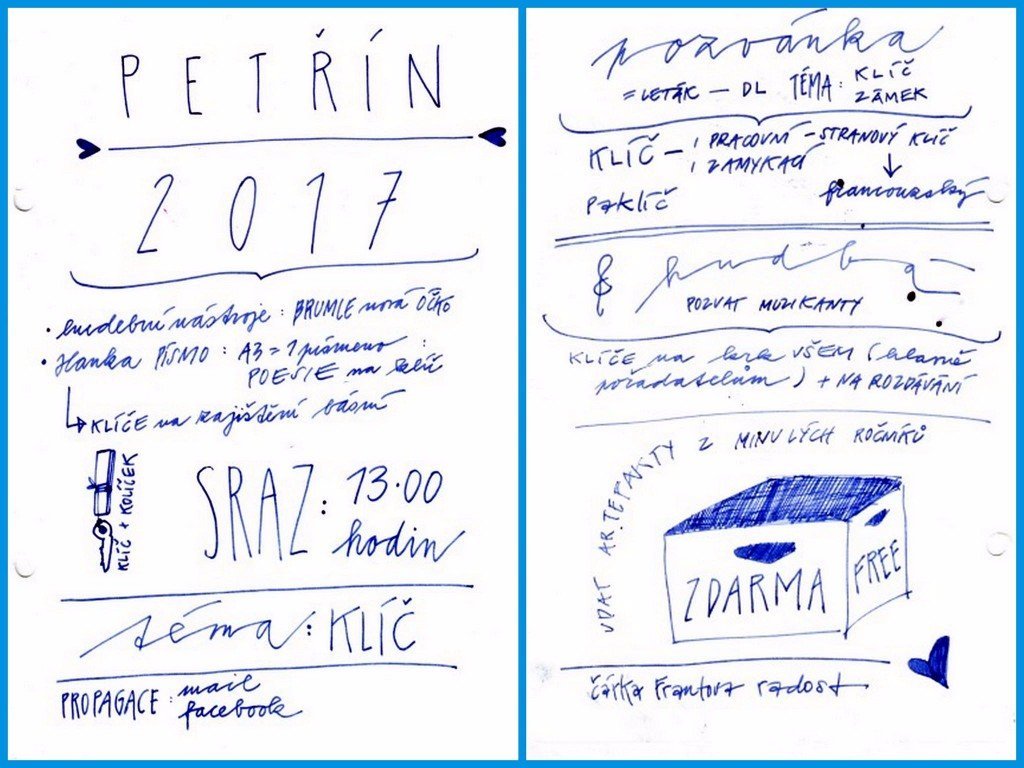 PETŘÍN
2017
• hudební nástroje: BRUMLE nová OČKO
• Hanka PÍSMO: A3 = 1 písmeno
POESIE na klíč
KLÍČE na zajištění básní
KLÍČ + KOLÍČEK
SRAZ: 13.00
hodin
téma: KLÍČ
PROPAGACE: mail
facebook
pozvánka
= LETÁK — DL TÉMA: KLÍČ
ZÁMEK
KLÍČ — PRACOVNÍ — STRANOVÝ KLÍČ
ZAMYKACÍ
francouzský
PAKLÍČ
hudba
POZVAT MUZIKANTY
KLÍČE na krk VŠEM (hlavně
pořadatelům) + NA ROZDÁVÁNÍ
UDAT ARTEFAKTY Z MINULÝCH ROČNÍKŮ
ZDARMA
FREE
čárka Frantova radost